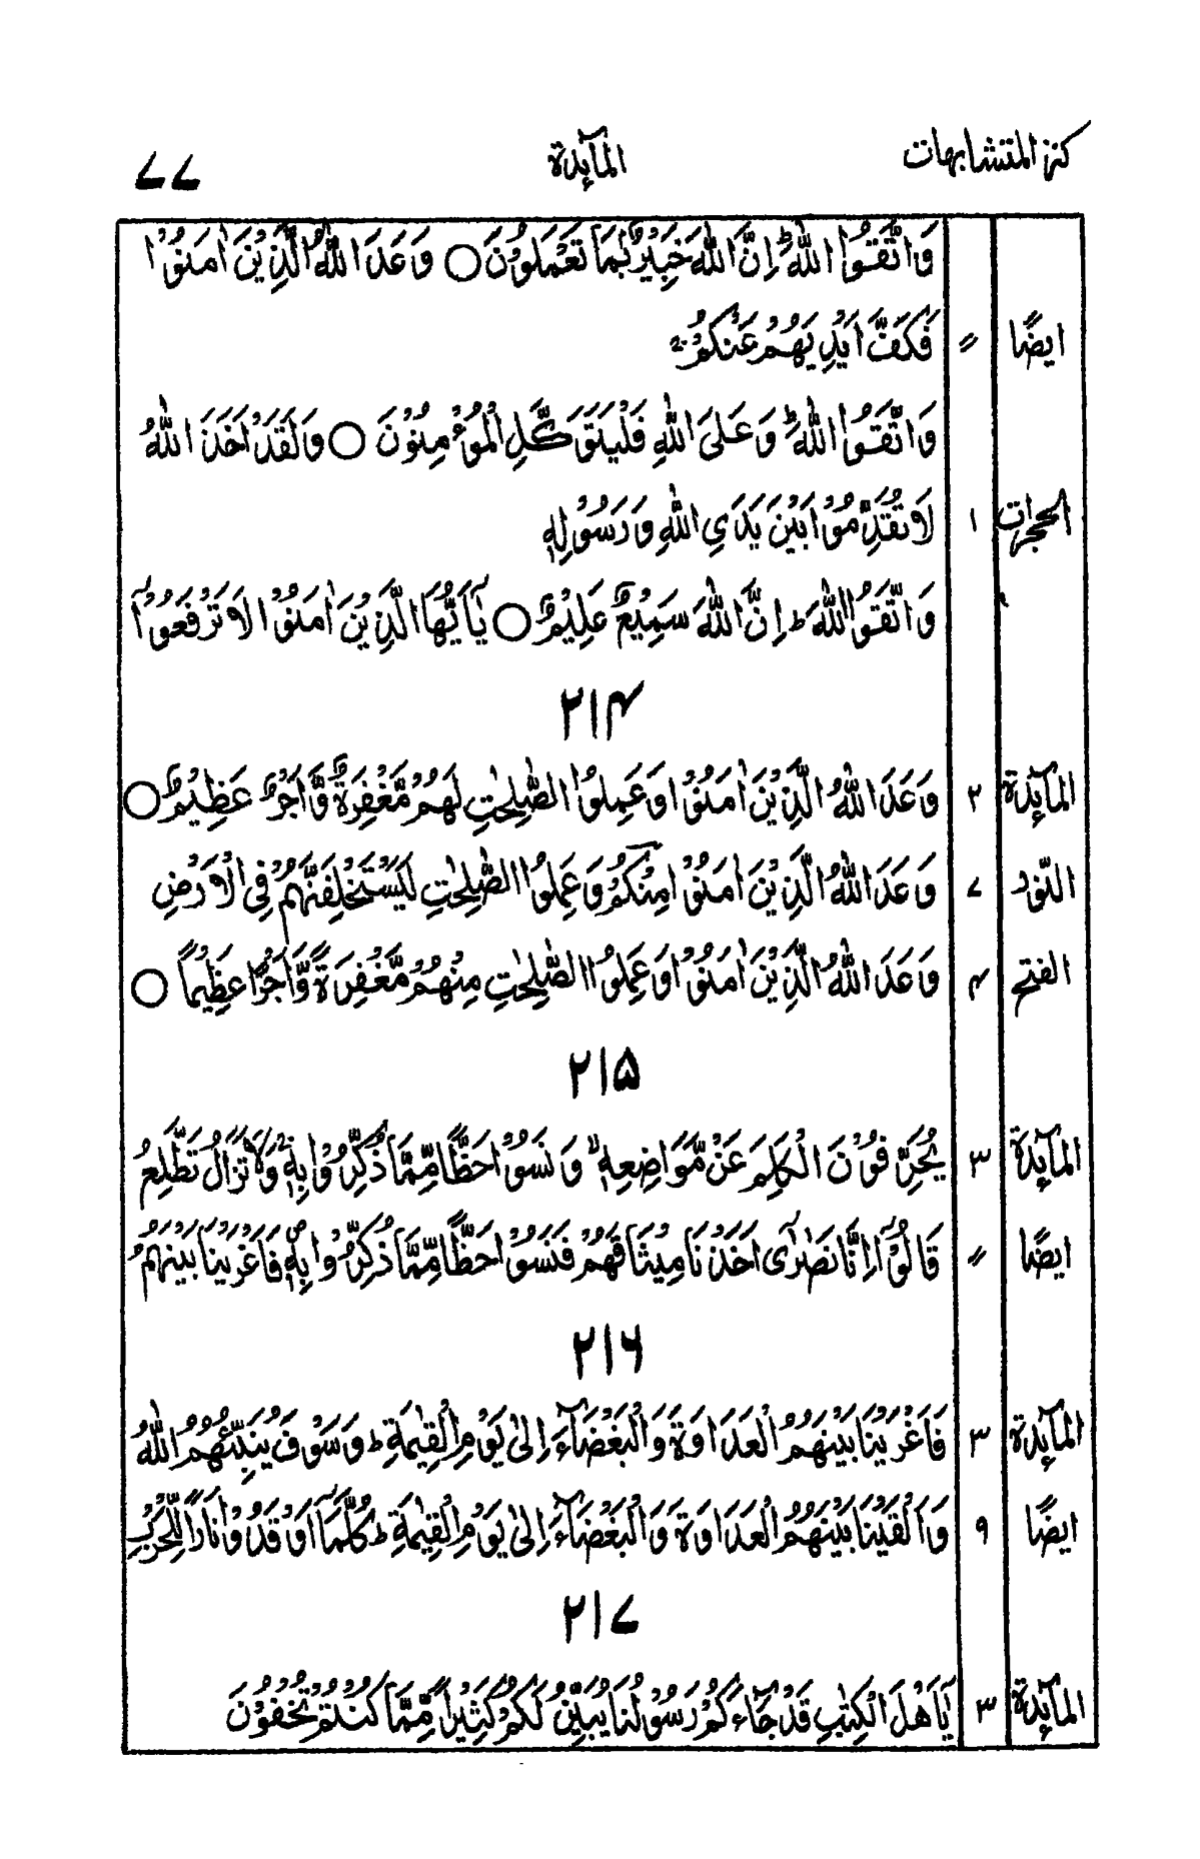 كنز المتشابهات المآئدة ۷۷
وَاتَّقُوا اللّٰهَ ؕ اِنَّ اللّٰهَ خَبِيْرٌۢ بِمَا تَعْمَلُوْنَ ○ وَعَدَ اللّٰهُ الَّذِيْنَ اٰمَنُوْا
ايضًا 〃 فَكَفَّ اَيْدِيَهُمْ عَنْكُمْ ۚ
وَاتَّقُوا اللّٰهَ ؕ وَعَلَى اللّٰهِ فَلْيَتَوَكَّلِ الْمُؤْمِنُوْنَ ○ وَلَقَدْ اَخَذَ اللّٰهُ
الحجرات ۱ لَا تُقَدِّمُوْا بَيْنَ يَدَيِ اللّٰهِ وَرَسُوْلِهٖ
وَاتَّقُوا اللّٰهَ ؕ اِنَّ اللّٰهَ سَمِيْعٌ عَلِيْمٌ ○ يٰۤاَيُّهَا الَّذِيْنَ اٰمَنُوْا لَا تَرْفَعُوْۤا
۲۱۴
المآئدة ۲ وَعَدَ اللّٰهُ الَّذِيْنَ اٰمَنُوْا وَعَمِلُوا الصّٰلِحٰتِ لَهُمْ مَّغْفِرَةٌ وَّاَجْرٌ عَظِيْمٌ ○
النّور ۷ وَعَدَ اللّٰهُ الَّذِيْنَ اٰمَنُوْا مِنْكُمْ وَعَمِلُوا الصّٰلِحٰتِ لَيَسْتَخْلِفَنَّهُمْ فِي الْاَرْضِ
الفتح ۴ وَعَدَ اللّٰهُ الَّذِيْنَ اٰمَنُوْا وَعَمِلُوا الصّٰلِحٰتِ مِنْهُمْ مَّغْفِرَةً وَّاَجْرًا عَظِيْمًا ○
۲۱۵
المآئدة ۳ يُحَرِّفُوْنَ الْكَلِمَ عَنْ مَّوَاضِعِهٖ ۙ وَنَسُوْا حَظًّا مِّمَّا ذُكِّرُوْا بِهٖ ۚ وَلَا تَزَالُ تَطَّلِعُ
ايضًا 〃 قَالُوْۤا اِنَّا نَصٰرٰۤى اَخَذْنَا مِيْثَاقَهُمْ فَنَسُوْا حَظًّا مِّمَّا ذُكِّرُوْا بِهٖ ۪ فَاَغْرَيْنَا بَيْنَهُمُ
۲۱۶
المآئدة ۳ فَاَغْرَيْنَا بَيْنَهُمُ الْعَدَاوَةَ وَالْبَغْضَآءَ اِلٰى يَوْمِ الْقِيٰمَةِ ؕ وَسَوْفَ يُنَبِّئُهُمُ اللّٰهُ
ايضًا ۹ وَاَلْقَيْنَا بَيْنَهُمُ الْعَدَاوَةَ وَالْبَغْضَآءَ اِلٰى يَوْمِ الْقِيٰمَةِ ؕ كُلَّمَاۤ اَوْقَدُوْا نَارًا لِّلْحَرْبِ
۲۱۷
المآئدة ۳ يٰۤاَهْلَ الْكِتٰبِ قَدْ جَآءَكُمْ رَسُوْلُنَا يُبَيِّنُ لَكُمْ كَثِيْرًا مِّمَّا كُنْتُمْ تُخْفُوْنَ